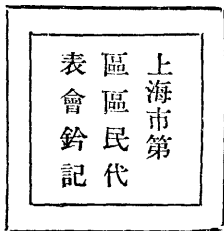 上海市第
區區民代
表會鈐記